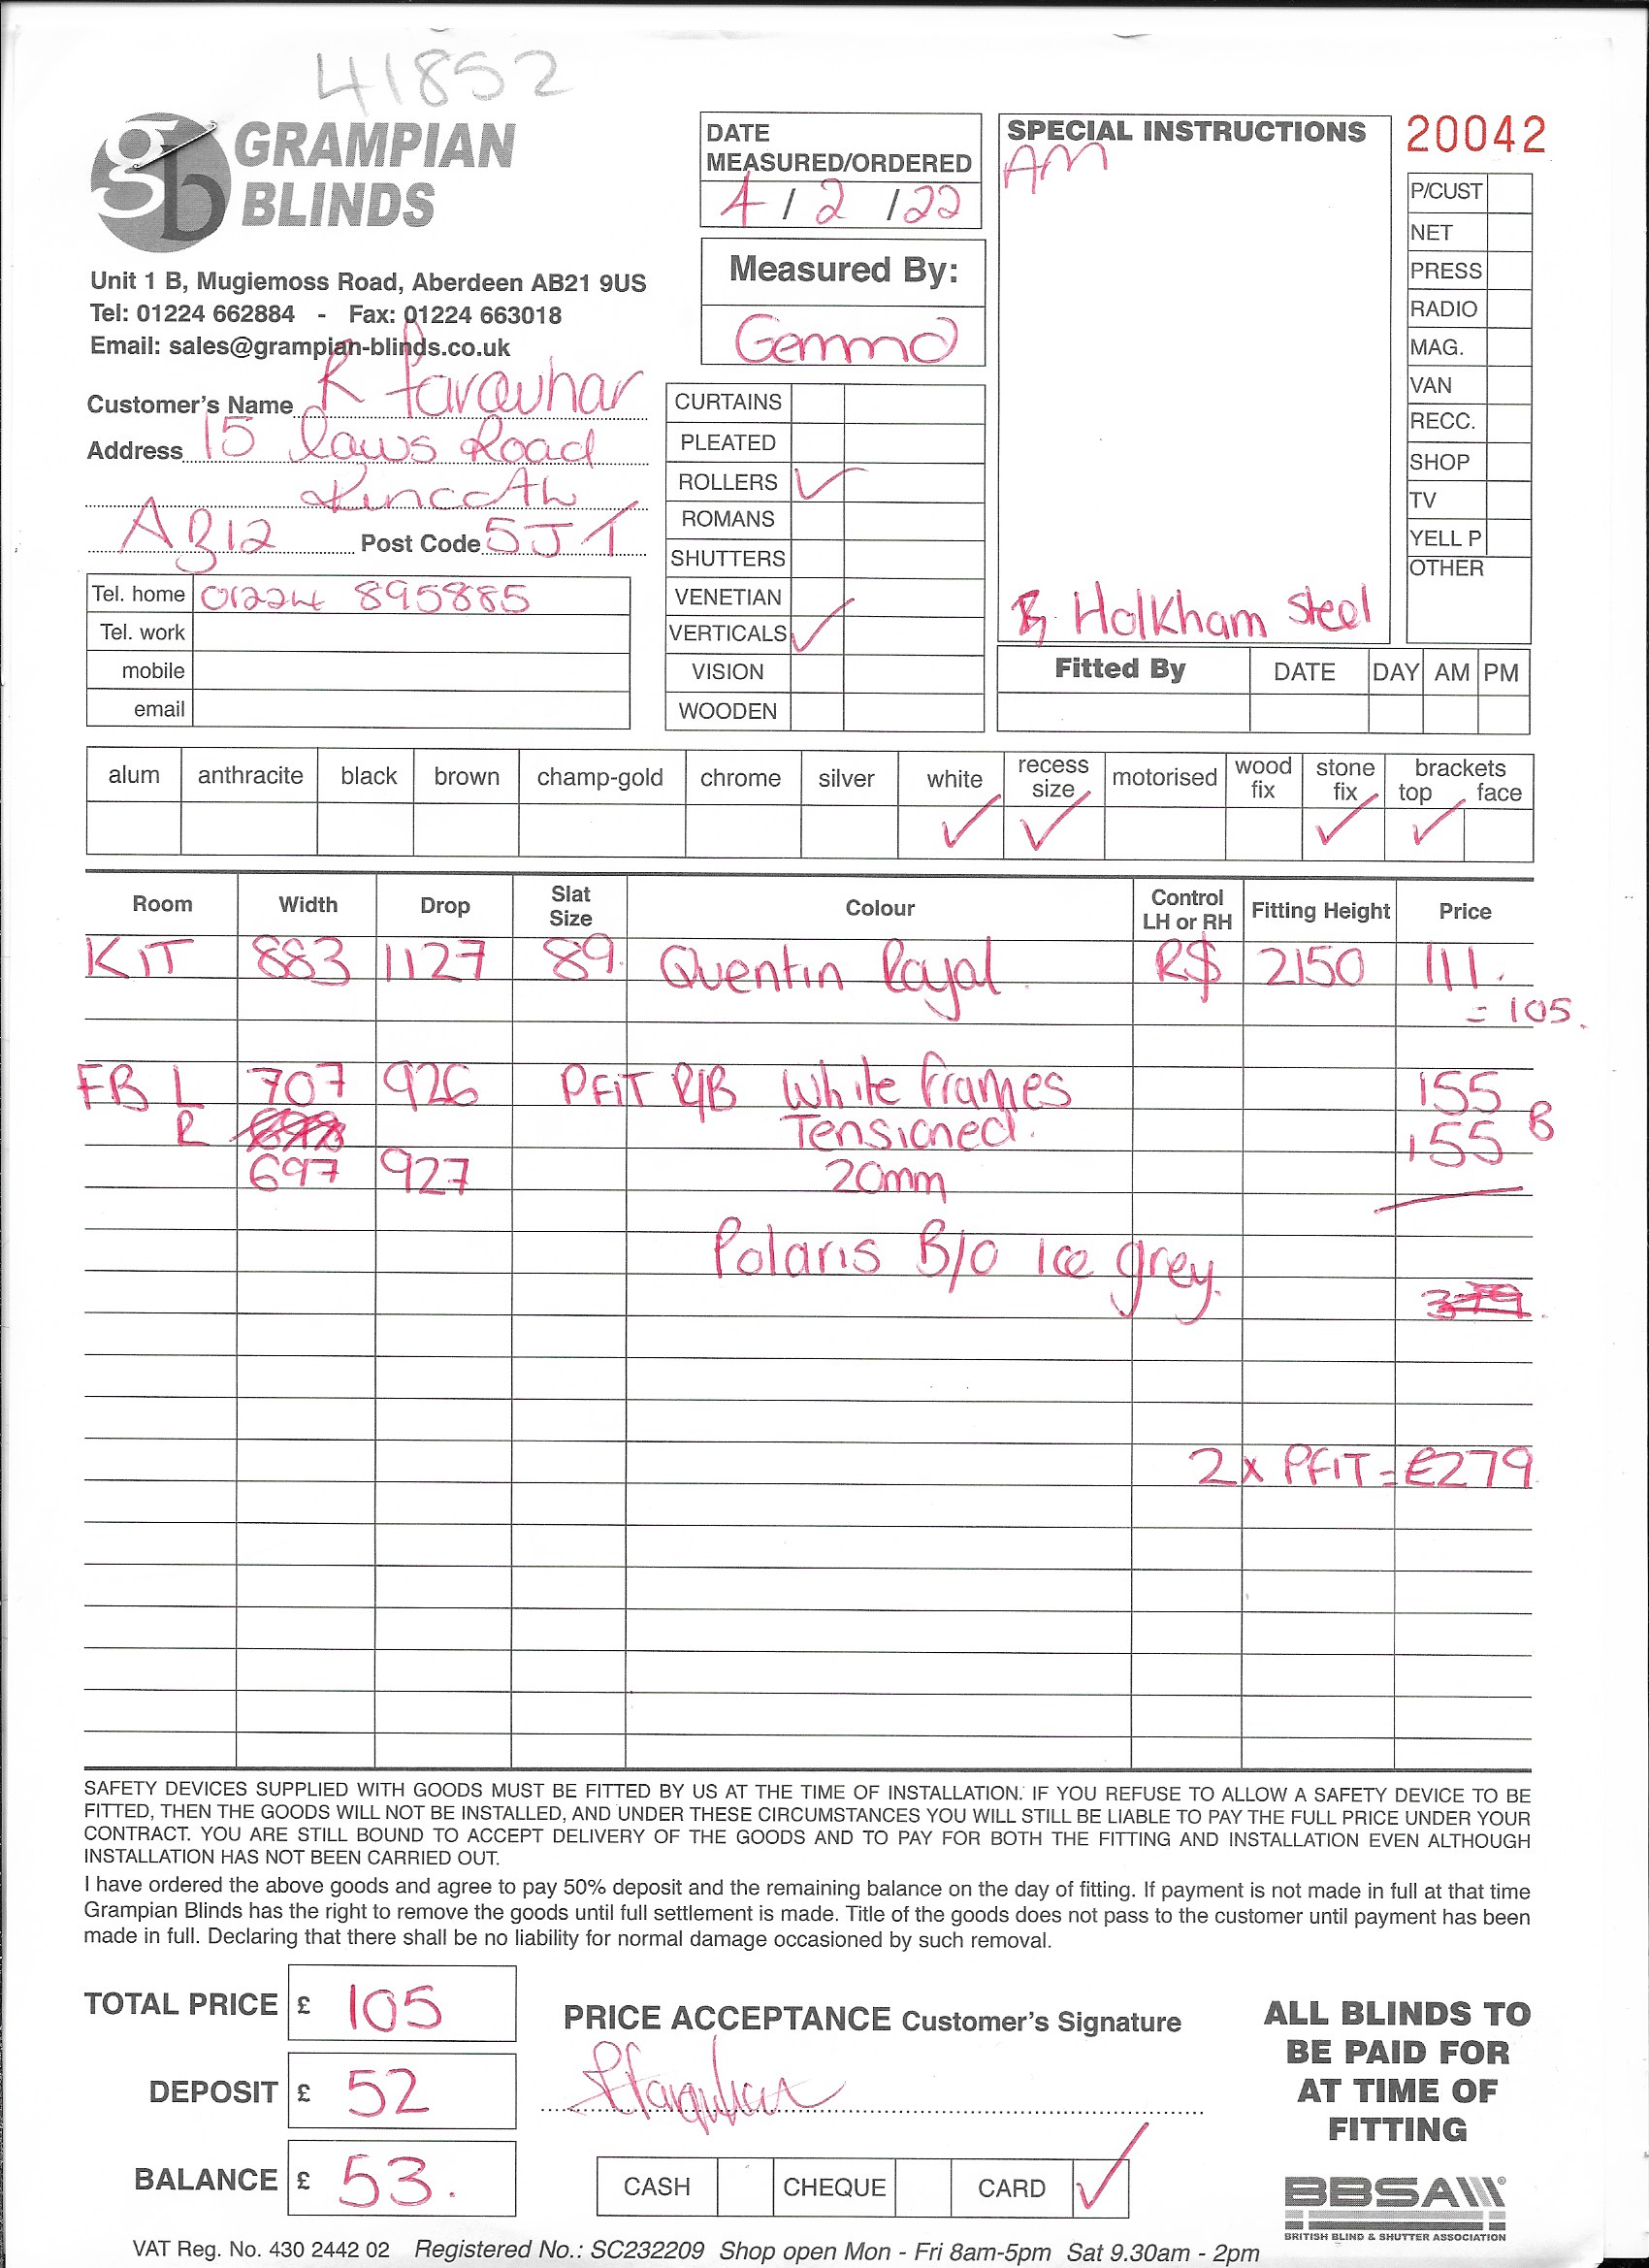 41852
GRAMPIAN
BLINDS
Unit 1 B, Mugiemoss Road, Aberdeen AB21 9US
Tel: 01224 662884 - Fax: 01224 663018
Email: sales@grampian-blinds.co.uk
Customer's Name R Farquhar
Address 15 Laws Road
Kincoth
AB12 Post Code 5JT
Tel. home 01224 895885
Tel. work
mobile
email
DATE
MEASURED/ORDERED
4/2/22
Measured By:
Gemma
CURTAINS
PLEATED
ROLLERS ✓
ROMANS
SHUTTERS
VENETIAN
VERTICALS ✓
VISION
WOODEN
SPECIAL INSTRUCTIONS
AM
Holkham Steel
20042
P/CUST
NET
PRESS
RADIO
MAG.
VAN
RECC.
SHOP
TV
YELL P
OTHER
Fitted By DATE DAY AM PM
alum anthracite black brown champ-gold chrome silver white ✓ recess size ✓ motorised wood fix stone fix ✓ brackets top ✓ face
Room Width Drop Slat Size Colour Control LH or RH Fitting Height Price
KIT 883 1127 89 Quentin Royal R 2150 111.
= 105.
FB L 707 926 PFIT R/B White frames 155
R Tensioned. 155 B
697 927 20mm
Polaris B/O Ice grey.
379
2 x PFIT = £279
SAFETY DEVICES SUPPLIED WITH GOODS MUST BE FITTED BY US AT THE TIME OF INSTALLATION. IF YOU REFUSE TO ALLOW A SAFETY DEVICE TO BE
FITTED, THEN THE GOODS WILL NOT BE INSTALLED, AND UNDER THESE CIRCUMSTANCES YOU WILL STILL BE LIABLE TO PAY THE FULL PRICE UNDER YOUR
CONTRACT. YOU ARE STILL BOUND TO ACCEPT DELIVERY OF THE GOODS AND TO PAY FOR BOTH THE FITTING AND INSTALLATION EVEN ALTHOUGH
INSTALLATION HAS NOT BEEN CARRIED OUT.
I have ordered the above goods and agree to pay 50% deposit and the remaining balance on the day of fitting. If payment is not made in full at that time
Grampian Blinds has the right to remove the goods until full settlement is made. Title of the goods does not pass to the customer until payment has been
made in full. Declaring that there shall be no liability for normal damage occasioned by such removal.
TOTAL PRICE £ 105
DEPOSIT £ 52
BALANCE £ 53.
PRICE ACCEPTANCE Customer's Signature
Farquhar
CASH CHEQUE CARD ✓
ALL BLINDS TO
BE PAID FOR
AT TIME OF
FITTING
BBSA
BRITISH BLIND & SHUTTER ASSOCIATION
VAT Reg. No. 430 2442 02 Registered No.: SC232209 Shop open Mon - Fri 8am-5pm Sat 9.30am - 2pm